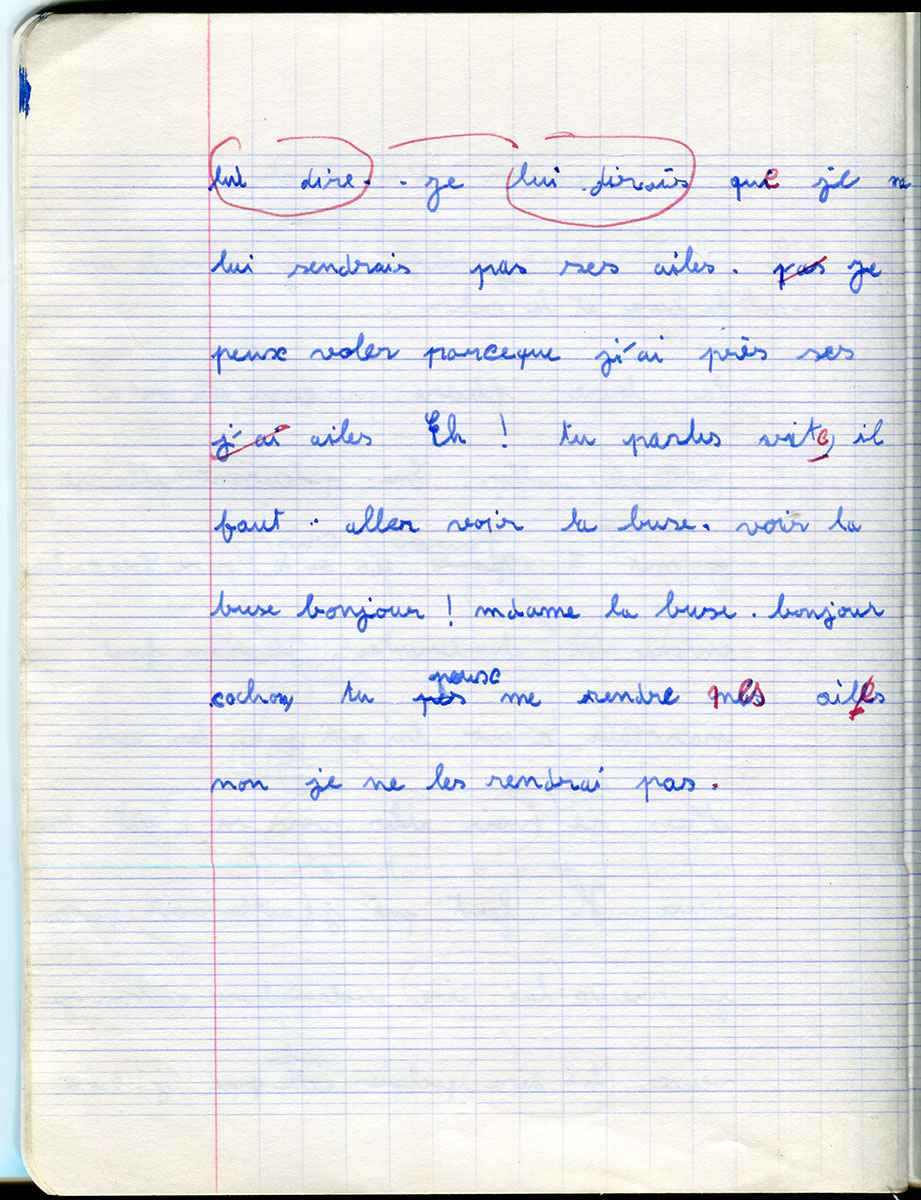 lui dire. . je lui dirais que je ne
lui rendrais pas ses ailes. pas je
peux voler parceque j'ai près ses
j'ai ailes Eh ! tu parles vite, il
faut. aller voir la buse. voir la
buse bonjour ! mdame la buse. bonjour
cochon tu pes peuse me rendre mes ailes
non je ne les rendrai pas.